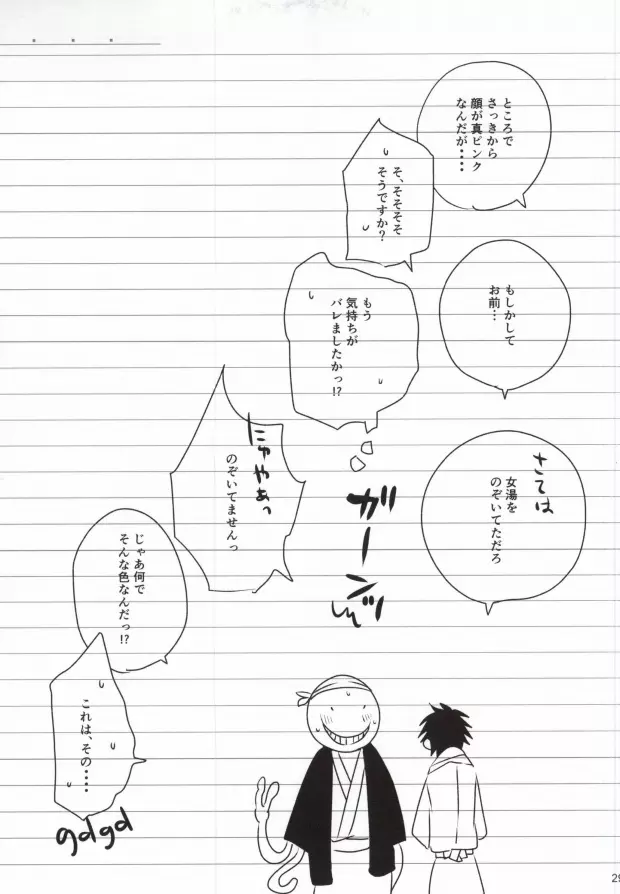 ところで
さっきから
顔が真ピンク
なんだが‥‥
そ、そそそそ
そうですか?
もしかして
お前…
もう
気持ちが
バレましたかっ!?
さては
女湯を
のぞいてただろ
ガーン
にゃやあっ
のぞいてませんっ
じゃあ何で
そんな色なんだっ!?
これは、その‥‥
gdgd
29